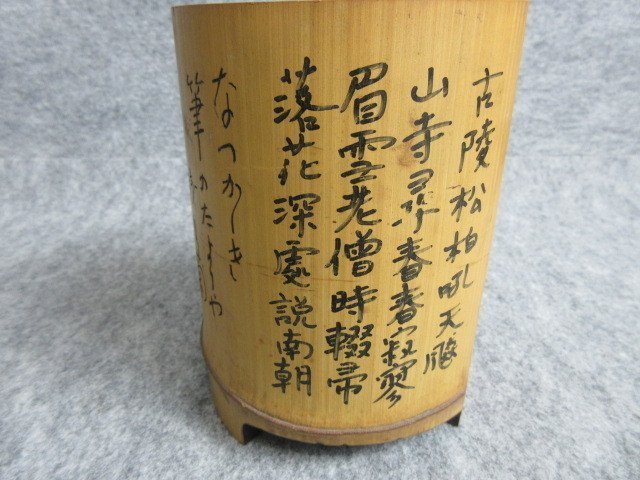 古陵松柏吼天飈
山寺尋春春寂寥
眉雪老僧時輟帚
落花深處説南朝
なつかしき
筆のかたよりや